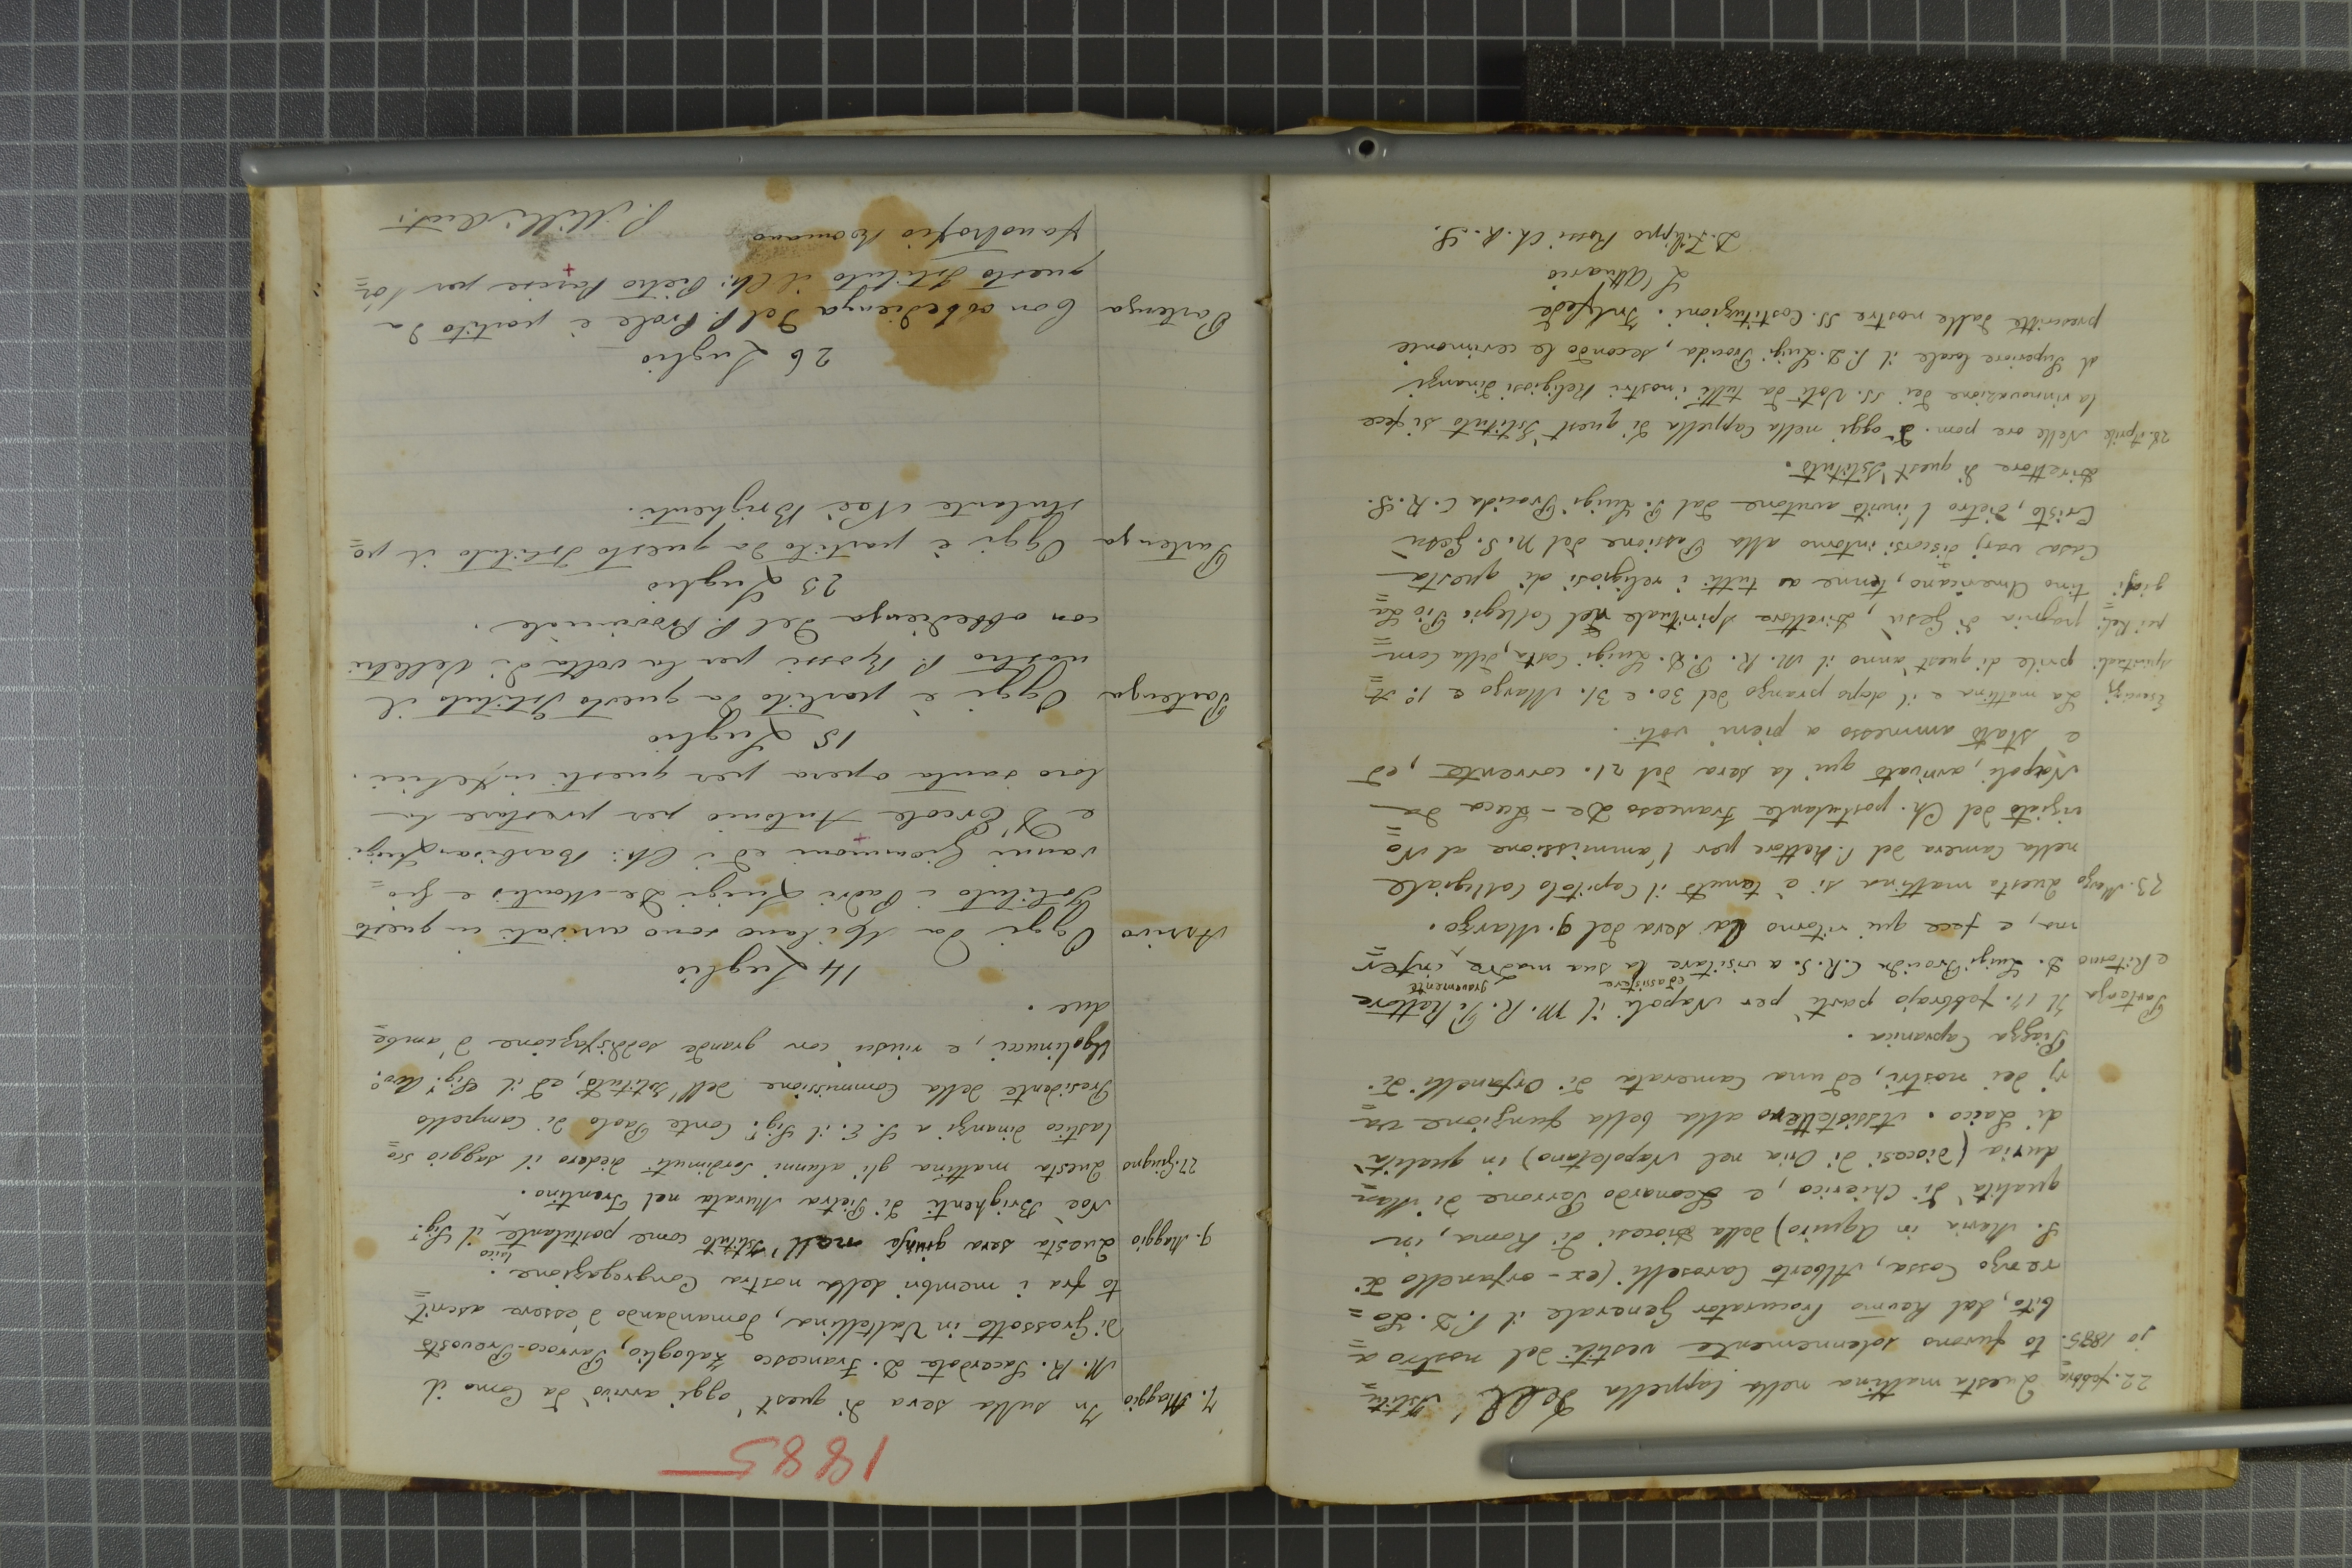 22. febbra= Questa mattina nella Cappella dell' Istitu=
jo 1885. to furono solennemente vestiti del nostro a=
bito, dal Revmo Procurator Generale il P. D. Lo=
renzo Cossa, Alberto Caroselli (ex-orfanello di
S. Maria in Aquiro) della Diocesi di Roma, in
qualità di Chierico, e Leonardo Perrone di Man=
duria (Diocesi di Oria nel Napoletano) in qualità
di Laico. Assistettero alla bella funzione va=
rj dei nostri, ed una Camerata di Orfanelli di
Piazza Capranica.
Partenza Il 17. febbrajo partì per Napoli il M. R. P. Rettore
e Ritorno D. Luigi Procida C.R.S. a visitare ed assistere la sua madre gravemente infer=
ma, e fece qui ritorno la sera del 9. Marzo.
23. Marzo Questa mattina si è tenuto il Capitolo Collegiale
nella Camera del P. Rettore per l'ammissione al No=
viziato del Ch. postulante Francesco De-Luca da
Napoli, arrivato qui la sera del 21. corrente, ed
è stato ammesso a pieni voti.
Esercizj La mattina e il dopo pranzo del 30. e 31. Marzo e 1.º A=
spirituali prile di quest'anno il M. R. P. D. Luigi Costa, della Com=
pei Reli= pagnia di Gesù, Direttore Spirituale del Collegio Pio La=
giosi tino Americano, tenne a tutti i religiosi di questa
Casa varj discorsi intorno alla Passione del N. S. Gesù
Cristo, dietro l'invito avutone dal P. Luigi Procida C. R. S.
Direttore di quest'Istituto.
28. Aprile Nelle ore pom. d'oggi nella Cappella di quest'Istituto si fece
la rinnovazione dei SS. Voti da tutti i nostri Religiosi dinanzi
al Superiore locale il P. D. Luigi Procida, secondo le cerimonie
prescritte dalle nostre SS. Costituzioni. In fede
L'Attuario
D. Filippo Rossi Ch. R. S.
1885
7. Maggio In sulla sera di quest'oggi arrivò da Como il
M. R. Sacerdote D. Francesco Zaboglio, Parroco-Prevosto
di Grossotto in Valtellina, domandando d'essere ascrit=
to fra i membri della nostra Congregazione.
9. Maggio Questa sera giunse nell'Istituto come postulante laico il Sig.r
Noè Brighenti di Pietra Murata nel Trentino.
27. Giugno Questa mattina gli alunni Sordimuti diedero il saggio sco=
lastico dinanzi a S. E. il Sig.r Conte Paolo di Campello
Presidente della Commissione dell'Istituto, ed il Sig.r Avv.º
Ugolinucci, e riuscì con grande soddisfazione d'ambe=
due.
14 Luglio
Arrivo Oggi da Milano sono arrivati in questo
Istituto i Padri Luigi De-Montis e Gio=
vanni Gianmoni ed i Ch: Barbisan Luigi
e D'Ercole Antonio per prestare la
loro santa opera per questi infelici.
15 Luglio
Partenza Oggi è partito da questo Istituto il
nostro P. Rossi per la volta di Velletri
con obbedienza del P. Provinciale.
23 Luglio
Partenza Oggi è partito da questo Istituto il po=
stulante Noè Brighenti.
26 Luglio
Partenza Con obbedienza del P. Prole è partito da
questo Istituto il Ch: Pietro Parise per l'or=
fanotrofio Romano